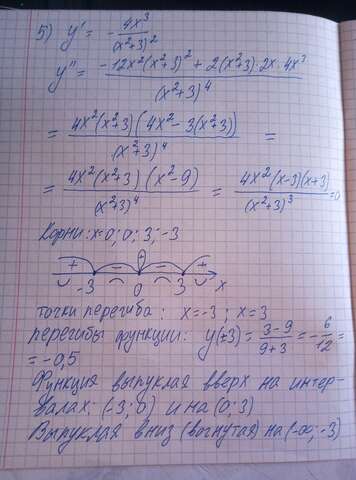 5) y' = - 4x³ / (x²+3)²
y'' = -12x²(x²+3)² + 2(x²+3)·2x·4x³ / (x²+3)⁴
= 4x²(x²+3)(4x²-3(x²+3)) / (x²+3)⁴ =
= 4x²(x²+3)(x²-9) / (x²+3)⁴ = 4x²(x-3)(x+3) / (x²+3)³ =0
Корни: x=0; 0; 3; -3
+ - 0 - +
-3 0 3 x
точки перегиба: x=-3; x=3
перегибы функции: y(±3) = 3-9 / 9+3 = -6/12 =
= -0,5
Функция выпуклая вверх на интер-
валах: (-3; 0) и на (0; 3)
Выпуклая вниз (вогнутая) на (-∞; -3)